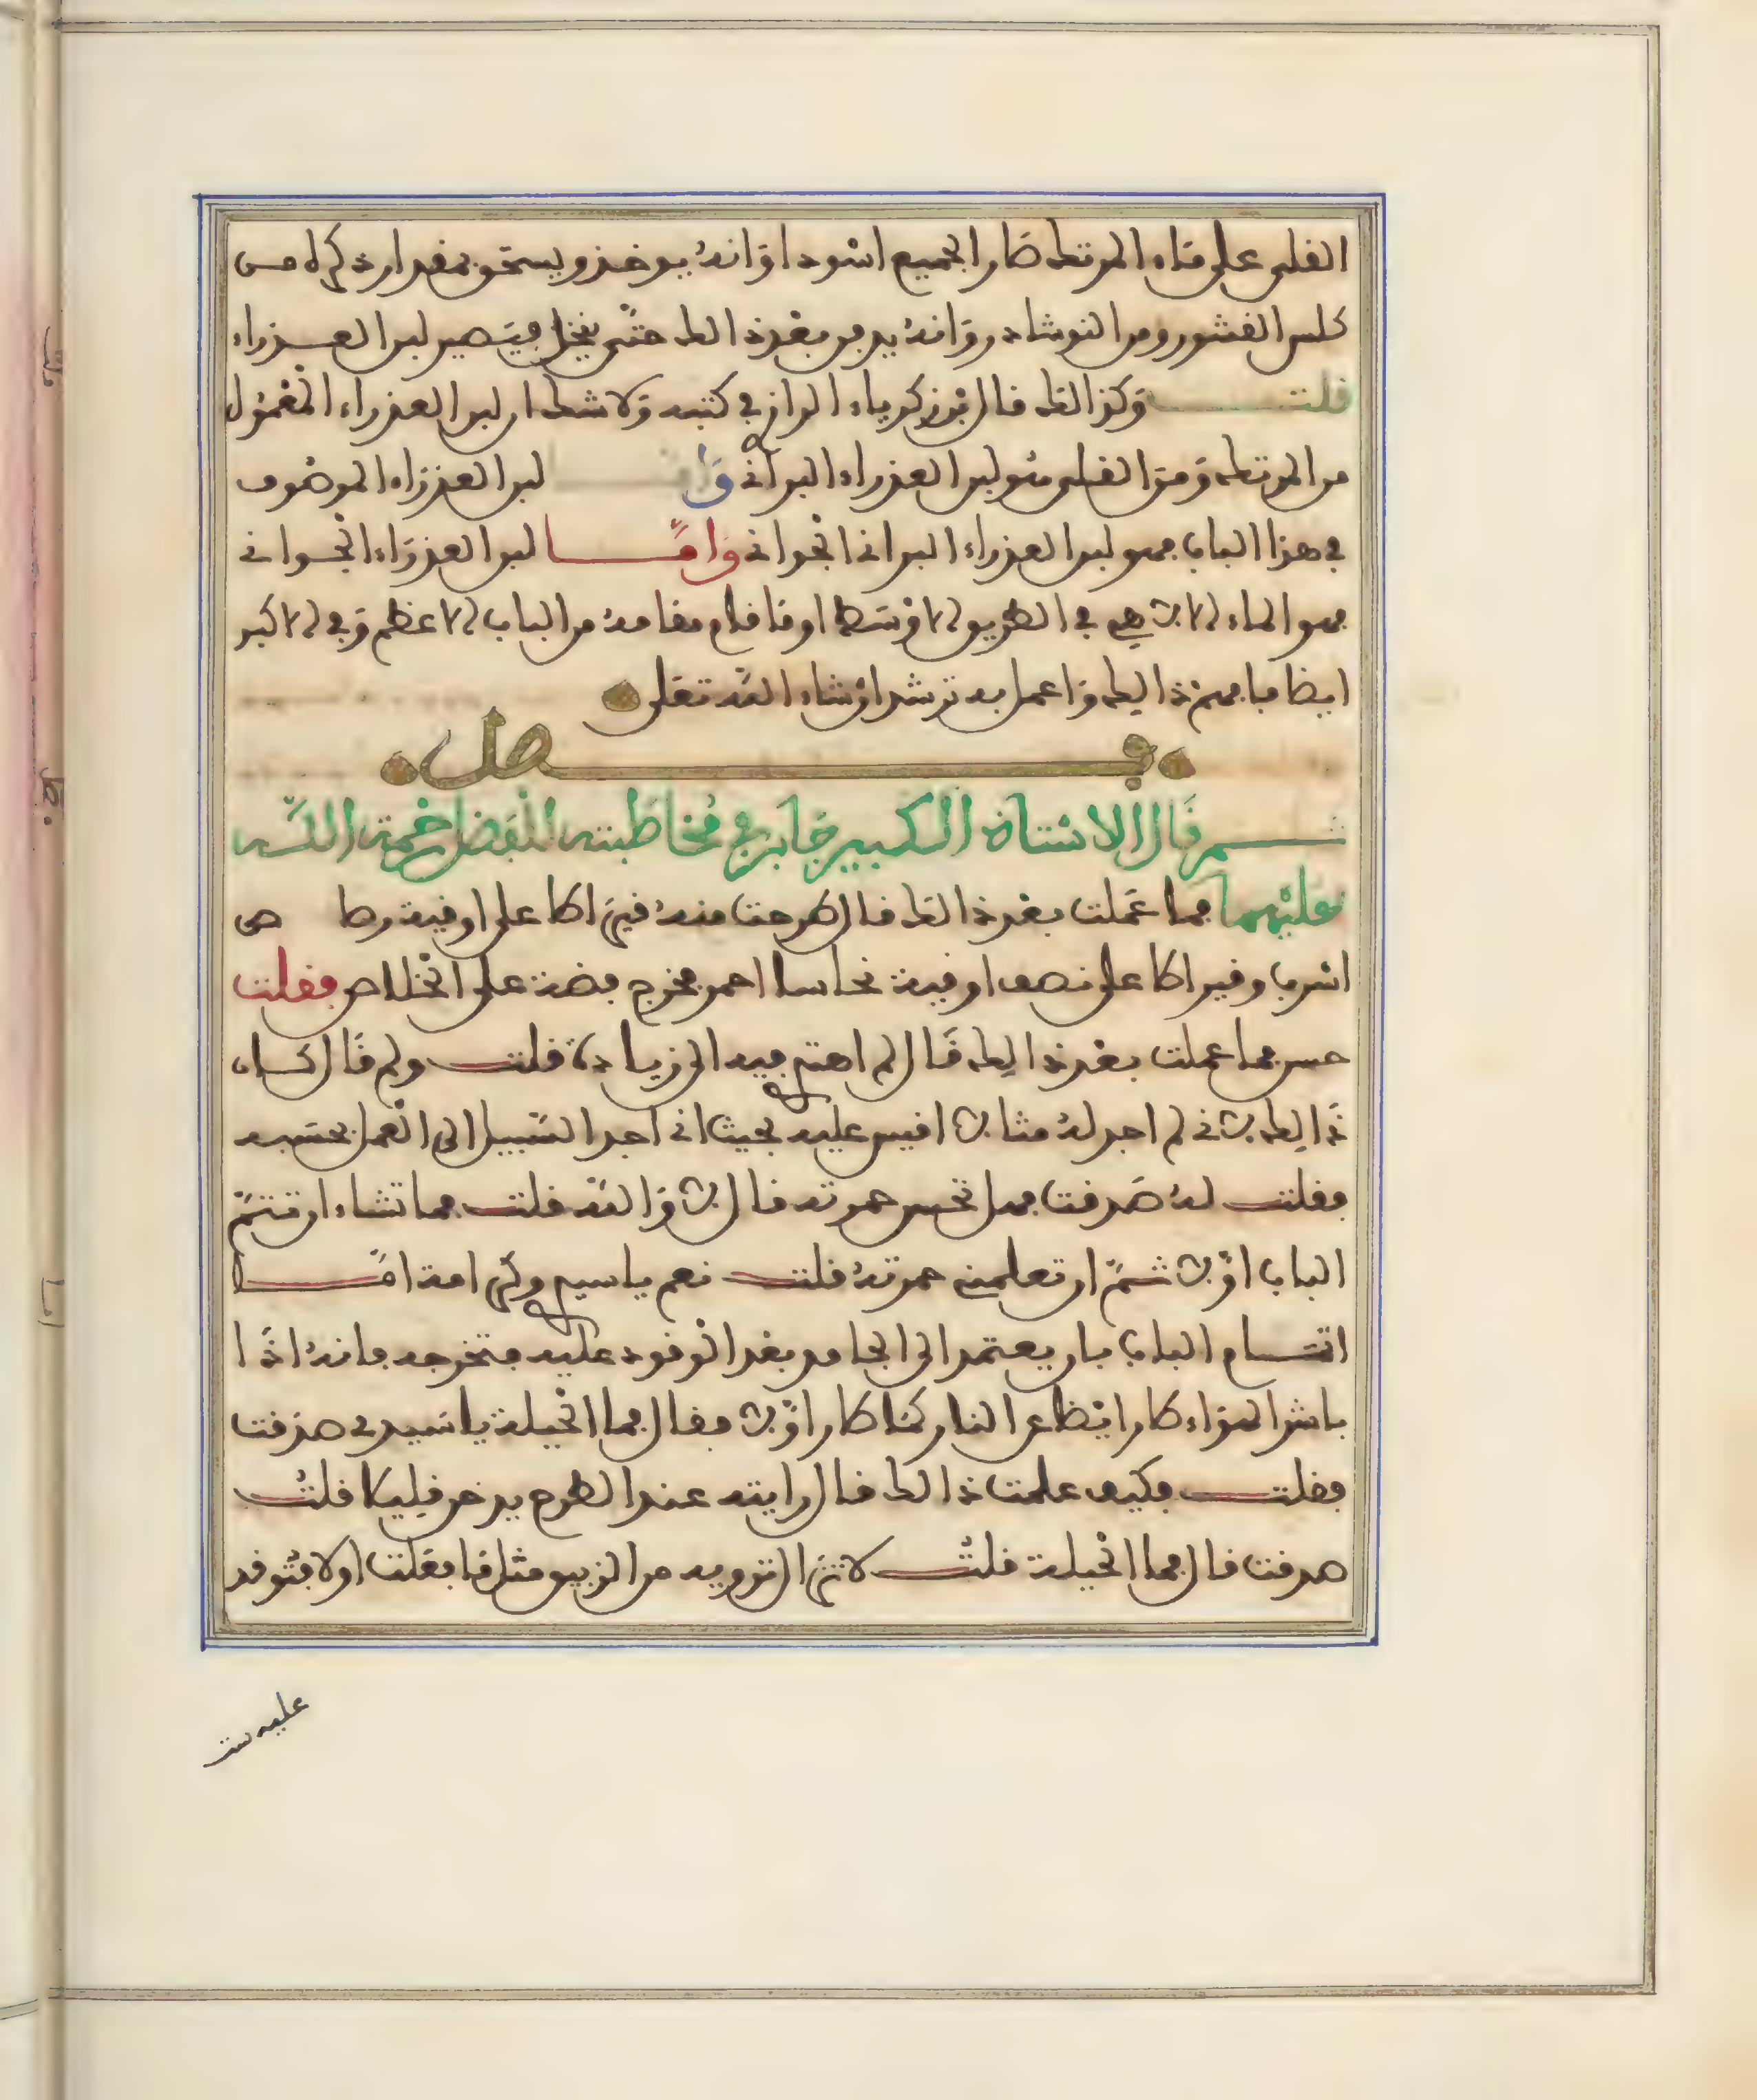 القلي على ماء المرتك صار الجميع اسود او انه يوخذ ويسحق بمقدار ذكره من
كلس القشور ومن النوشادر وانه يدبر بعد ذالك حتى ينحل فيصير لبن العـذراء
قلت وكذالك قال ابن زكرياء الرازي في كتبه ولا شك ان لبن العذراء المعمول
من المرتك ومن القلي هو لبن العذراء البراني وامـا لبن العذراء الموصوف
في هذا الباب فهو لبن العذراء البراني الجواني وامـا لبن العذراء الجواني
فهو الماء الالاهي في الطريق الاوسط او ما قام مقامه من الباب الاعظم وفي الاكبر
ايضا فافهم ذالك واعمل به ترشد ان شاء الله تعلى
فـصل
ثـم قال الاستاذ الكبير جابر في مخاطبته للمفضل رحمة اللـه
عليهما فما عملت بعد ذالك قال طرحت منه قيراطا على اوقية رصاص
اسرب وقيراطا على نصف اوقية نحاسا احمر فخرج فضة على الخلاص فقلت
حسن فما عملت بعد ذالك قال لم اهتم فيه الى زيادة قلت ولم قال كان
ذالك لاني لم اجد له مثالا اقيس عليه بحيث اني اجد السبيل الى العمل بحسبه
فقلت له صدقت فهل تحسن حمرته قال لا والله قلت فما تشاء ان تتم
الباب اولا ثم ان تعلمني حمرته قلت نعم ياسيدي وكرامة امـا
اتمـام الباب بان يعتمد الى الجامد بعد الوقود عليه فتخرجه فانه اذا
باشر الهواء كان ايضا عن النار كما كان اولا فقال فما الحيلة ياسيدي صدقت
فقلت فكيف علمت ذالك قال رايته عند الطرح يدخن قليلا قلت
صدقت قال فما الحيلة قلت لا تزال تزوده من الزيبق مثل ما فعلت اولا فتوقد
عليه ست